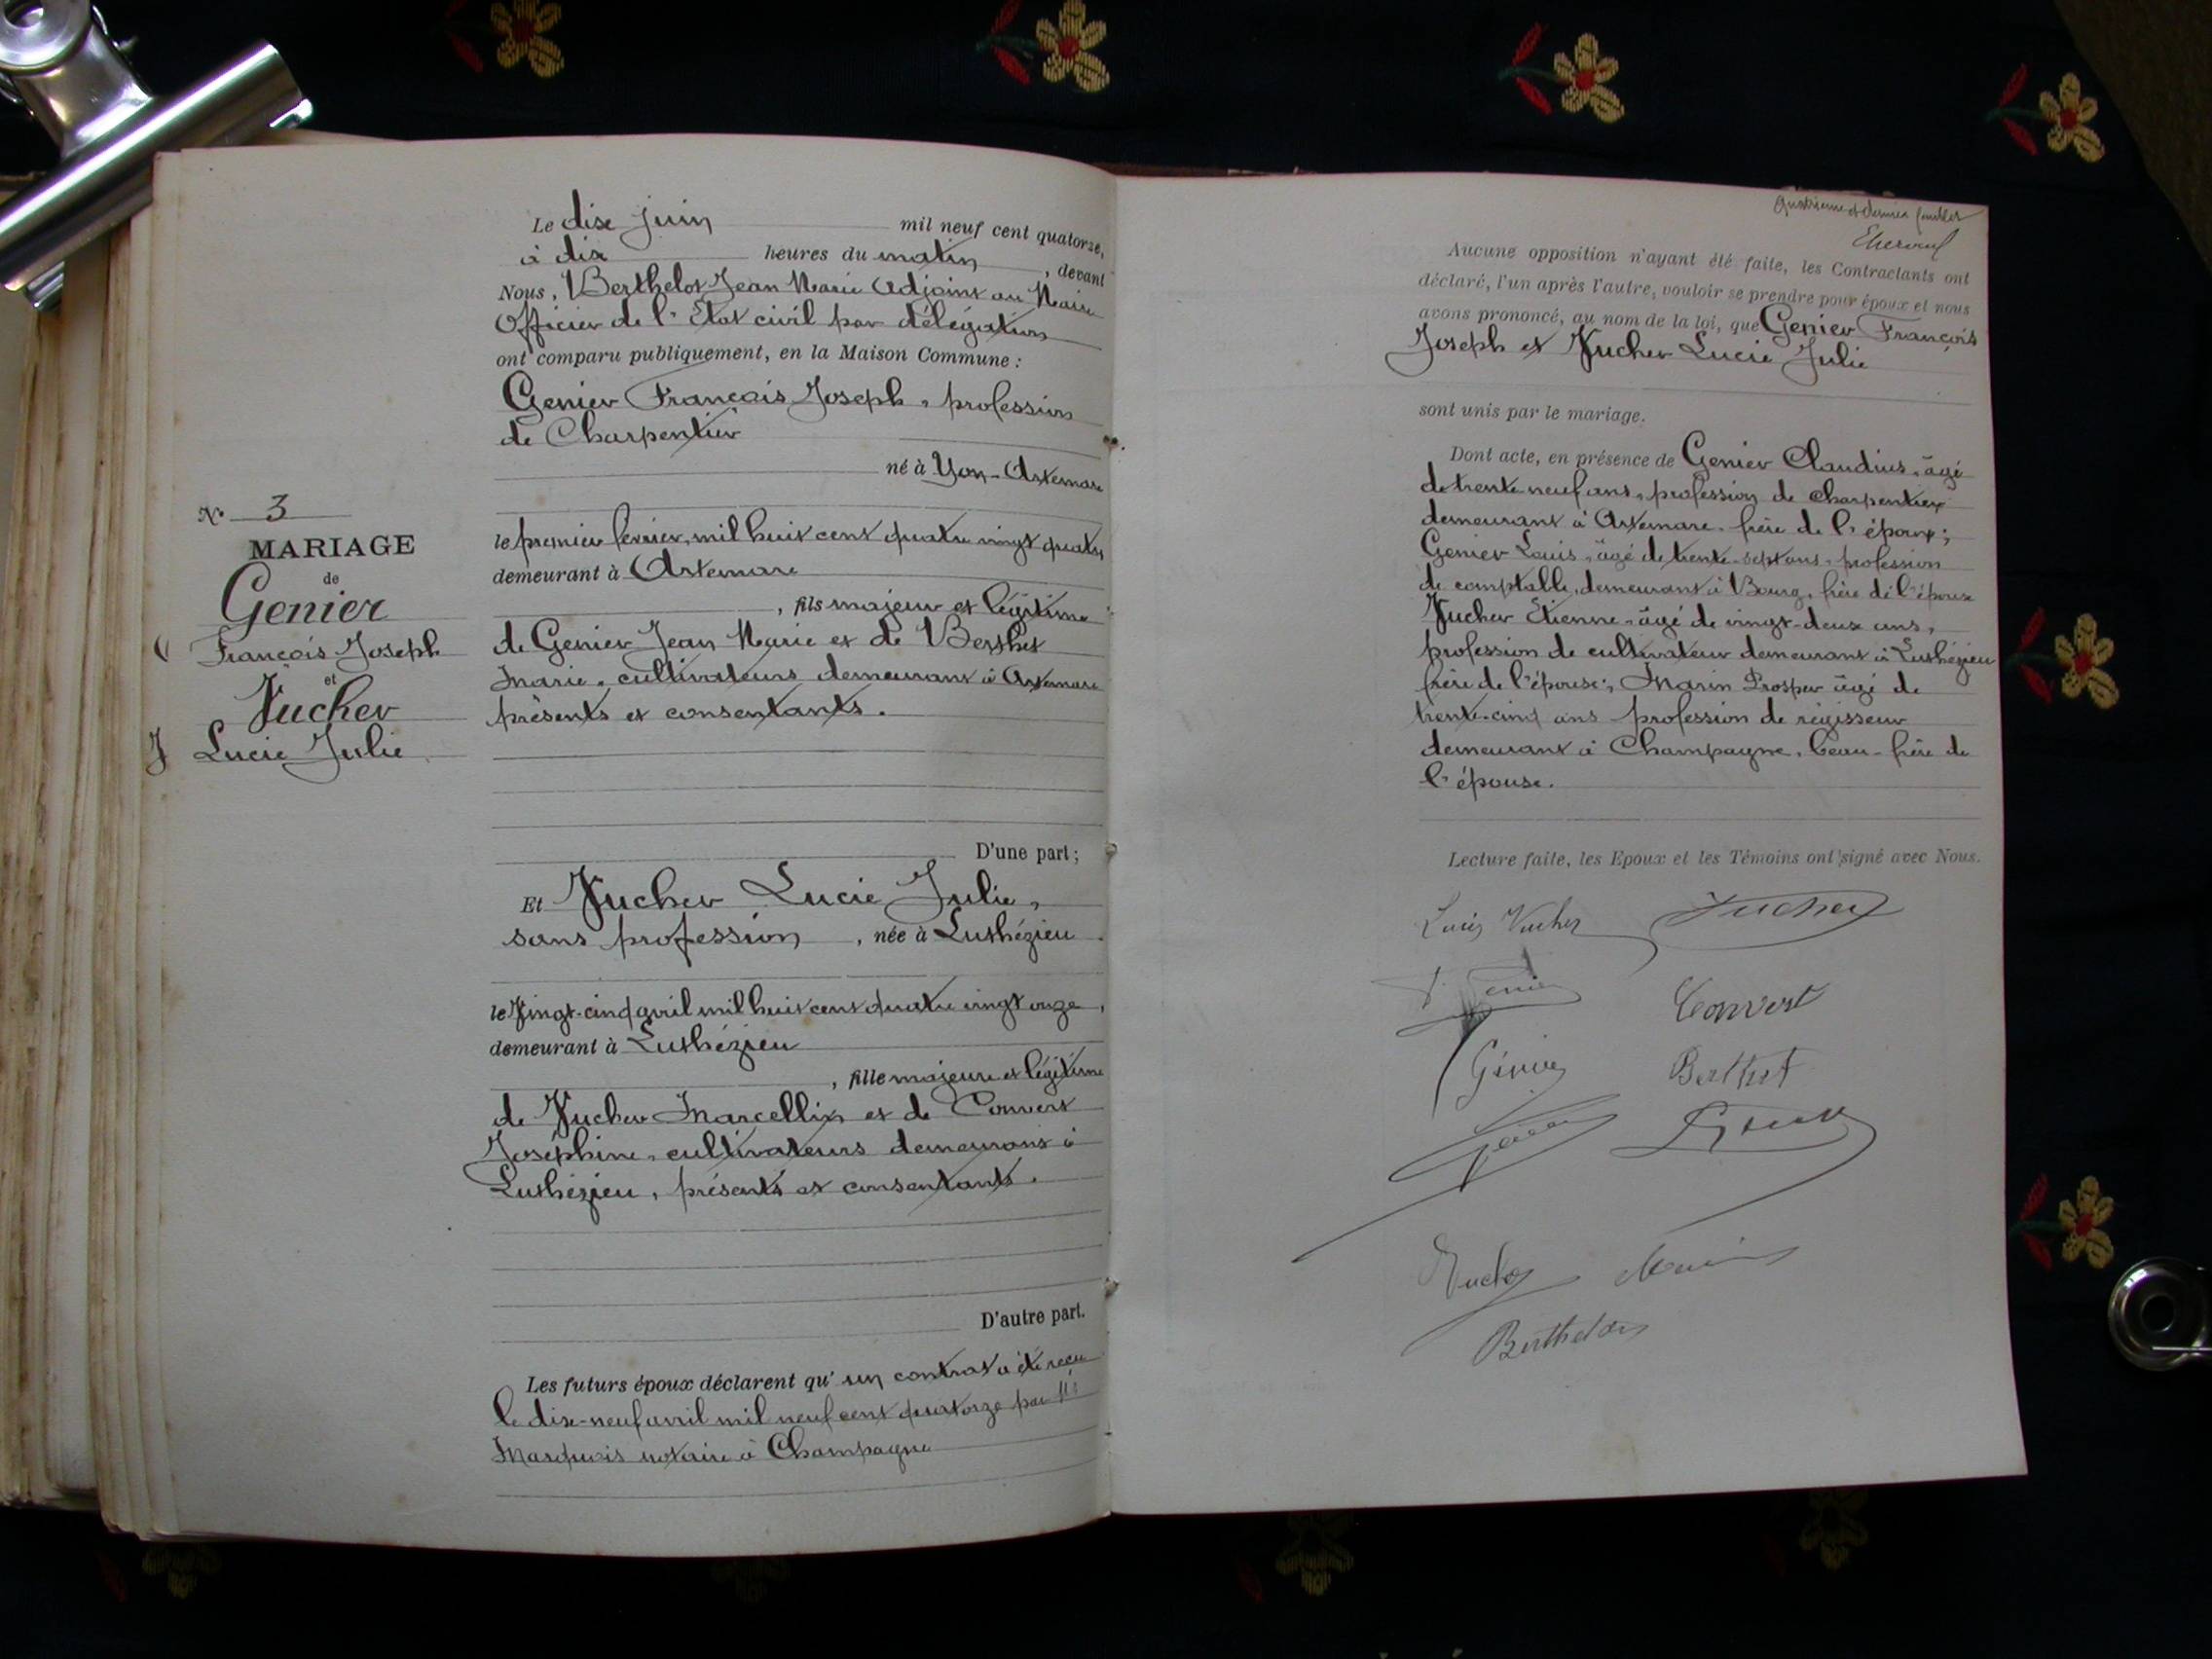 N° 3
MARIAGE
de
Genier
François Joseph
et
Vucher
Lucie Julie
Le dix juin mil neuf cent quatorze,
à dix heures du matin, devant
Nous, Berthelot Jean Marie Adjoint au Maire
Officier de l'Etat civil par délégation
ont comparu publiquement, en la Maison Commune :
Genier François Joseph, profession
de Charpentier
né à Yon-Artemare
le premier février, mil huit cent quatre vingt quatre
demeurant à Artemare
, fils majeur et légitime
de Genier Jean Marie et de Berthet
Marie, cultivateurs demeurant à Artemare
présents et consentants.
D'une part ;
Et Vucher Lucie Julie,
sans profession, née à Luthézieu
le Vingt-cinq avril mil huit cent quatre vingt onze,
demeurant à Luthézieu
, fille majeure et légitime
de Vucher Marcellin et de Convert
Joséphine, cultivateurs demeurant à
Luthézieu, présents et consentants.
D'autre part.
Les futurs époux déclarent qu'un contrat a été reçu
le dix-neuf avril mil neuf cent quatorze par Me
Marquis notaire à Champagne
Quatrième et dernier feuillet
Aucune opposition n'ayant été faite, les Contractants ont
déclaré, l'un après l'autre, vouloir se prendre pour époux et nous
avons prononcé, au nom de la loi, que Genier François
Joseph et Vucher Lucie Julie
sont unis par le mariage.
Dont acte, en présence de Genier Claudius, âgé
de trente neuf ans, profession de charpentier
demeurant à Artemare, frère de l'époux ;
Genier Louis, âgé de trente-sept ans, profession
de comptable, demeurant à Bourg, frère de l'époux
Vucher Etienne, âgé de vingt-deux ans,
profession de cultivateur demeurant à Luthézieu
frère de l'épouse ; Marin Prosper âgé de
trente-cinq ans profession de régisseur
demeurant à Champagne, beau-frère de
l'épouse.
Lecture faite, les Epoux et les Témoins ont signé avec Nous.
Lucie Vucher Vucher
Genier Convert
Génier Berthet
Vucher Marin
Berthelot